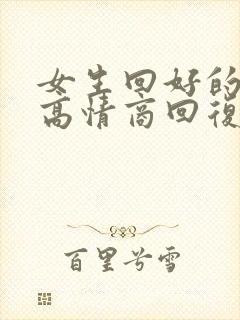 女生回好的
高情商回復
百里兮雪